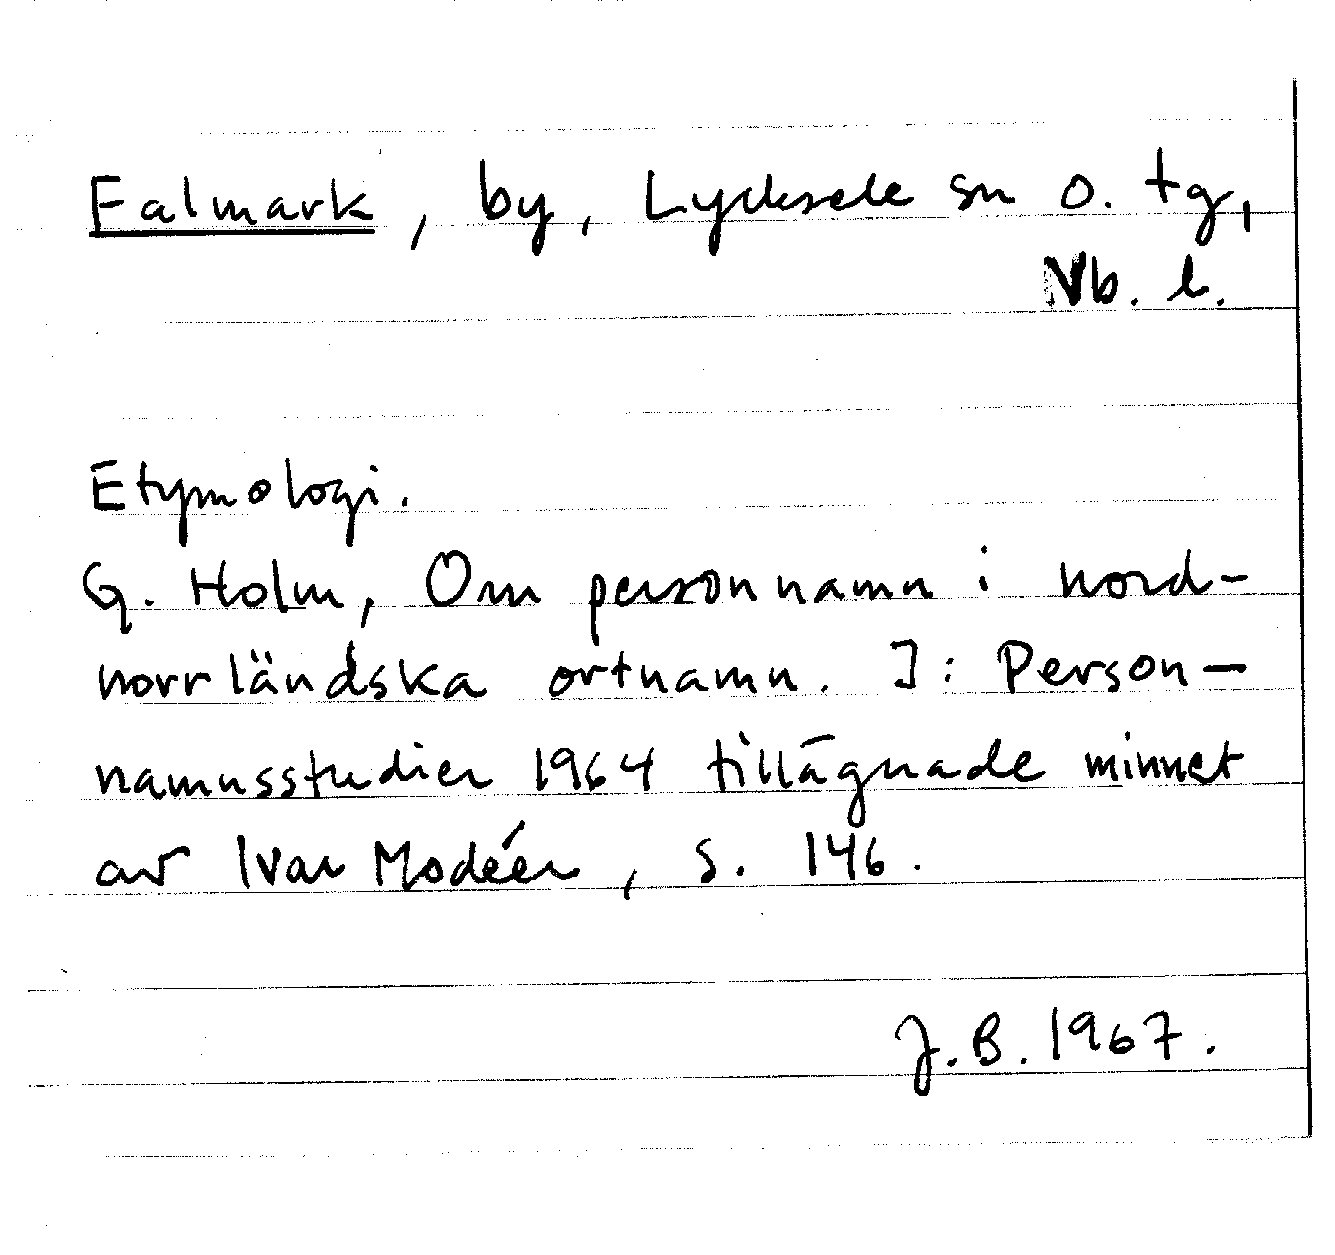 Falmark, by, Lycksele sn o. tg,
Vb. l.
Etymologi.
G. Holm, Om personnamn i nord-
norrländska ortnamn. I: Person-
namnsstudier 1964 tillägnade minnet
av Ivar Modéer, s. 146.
J.B. 1967.